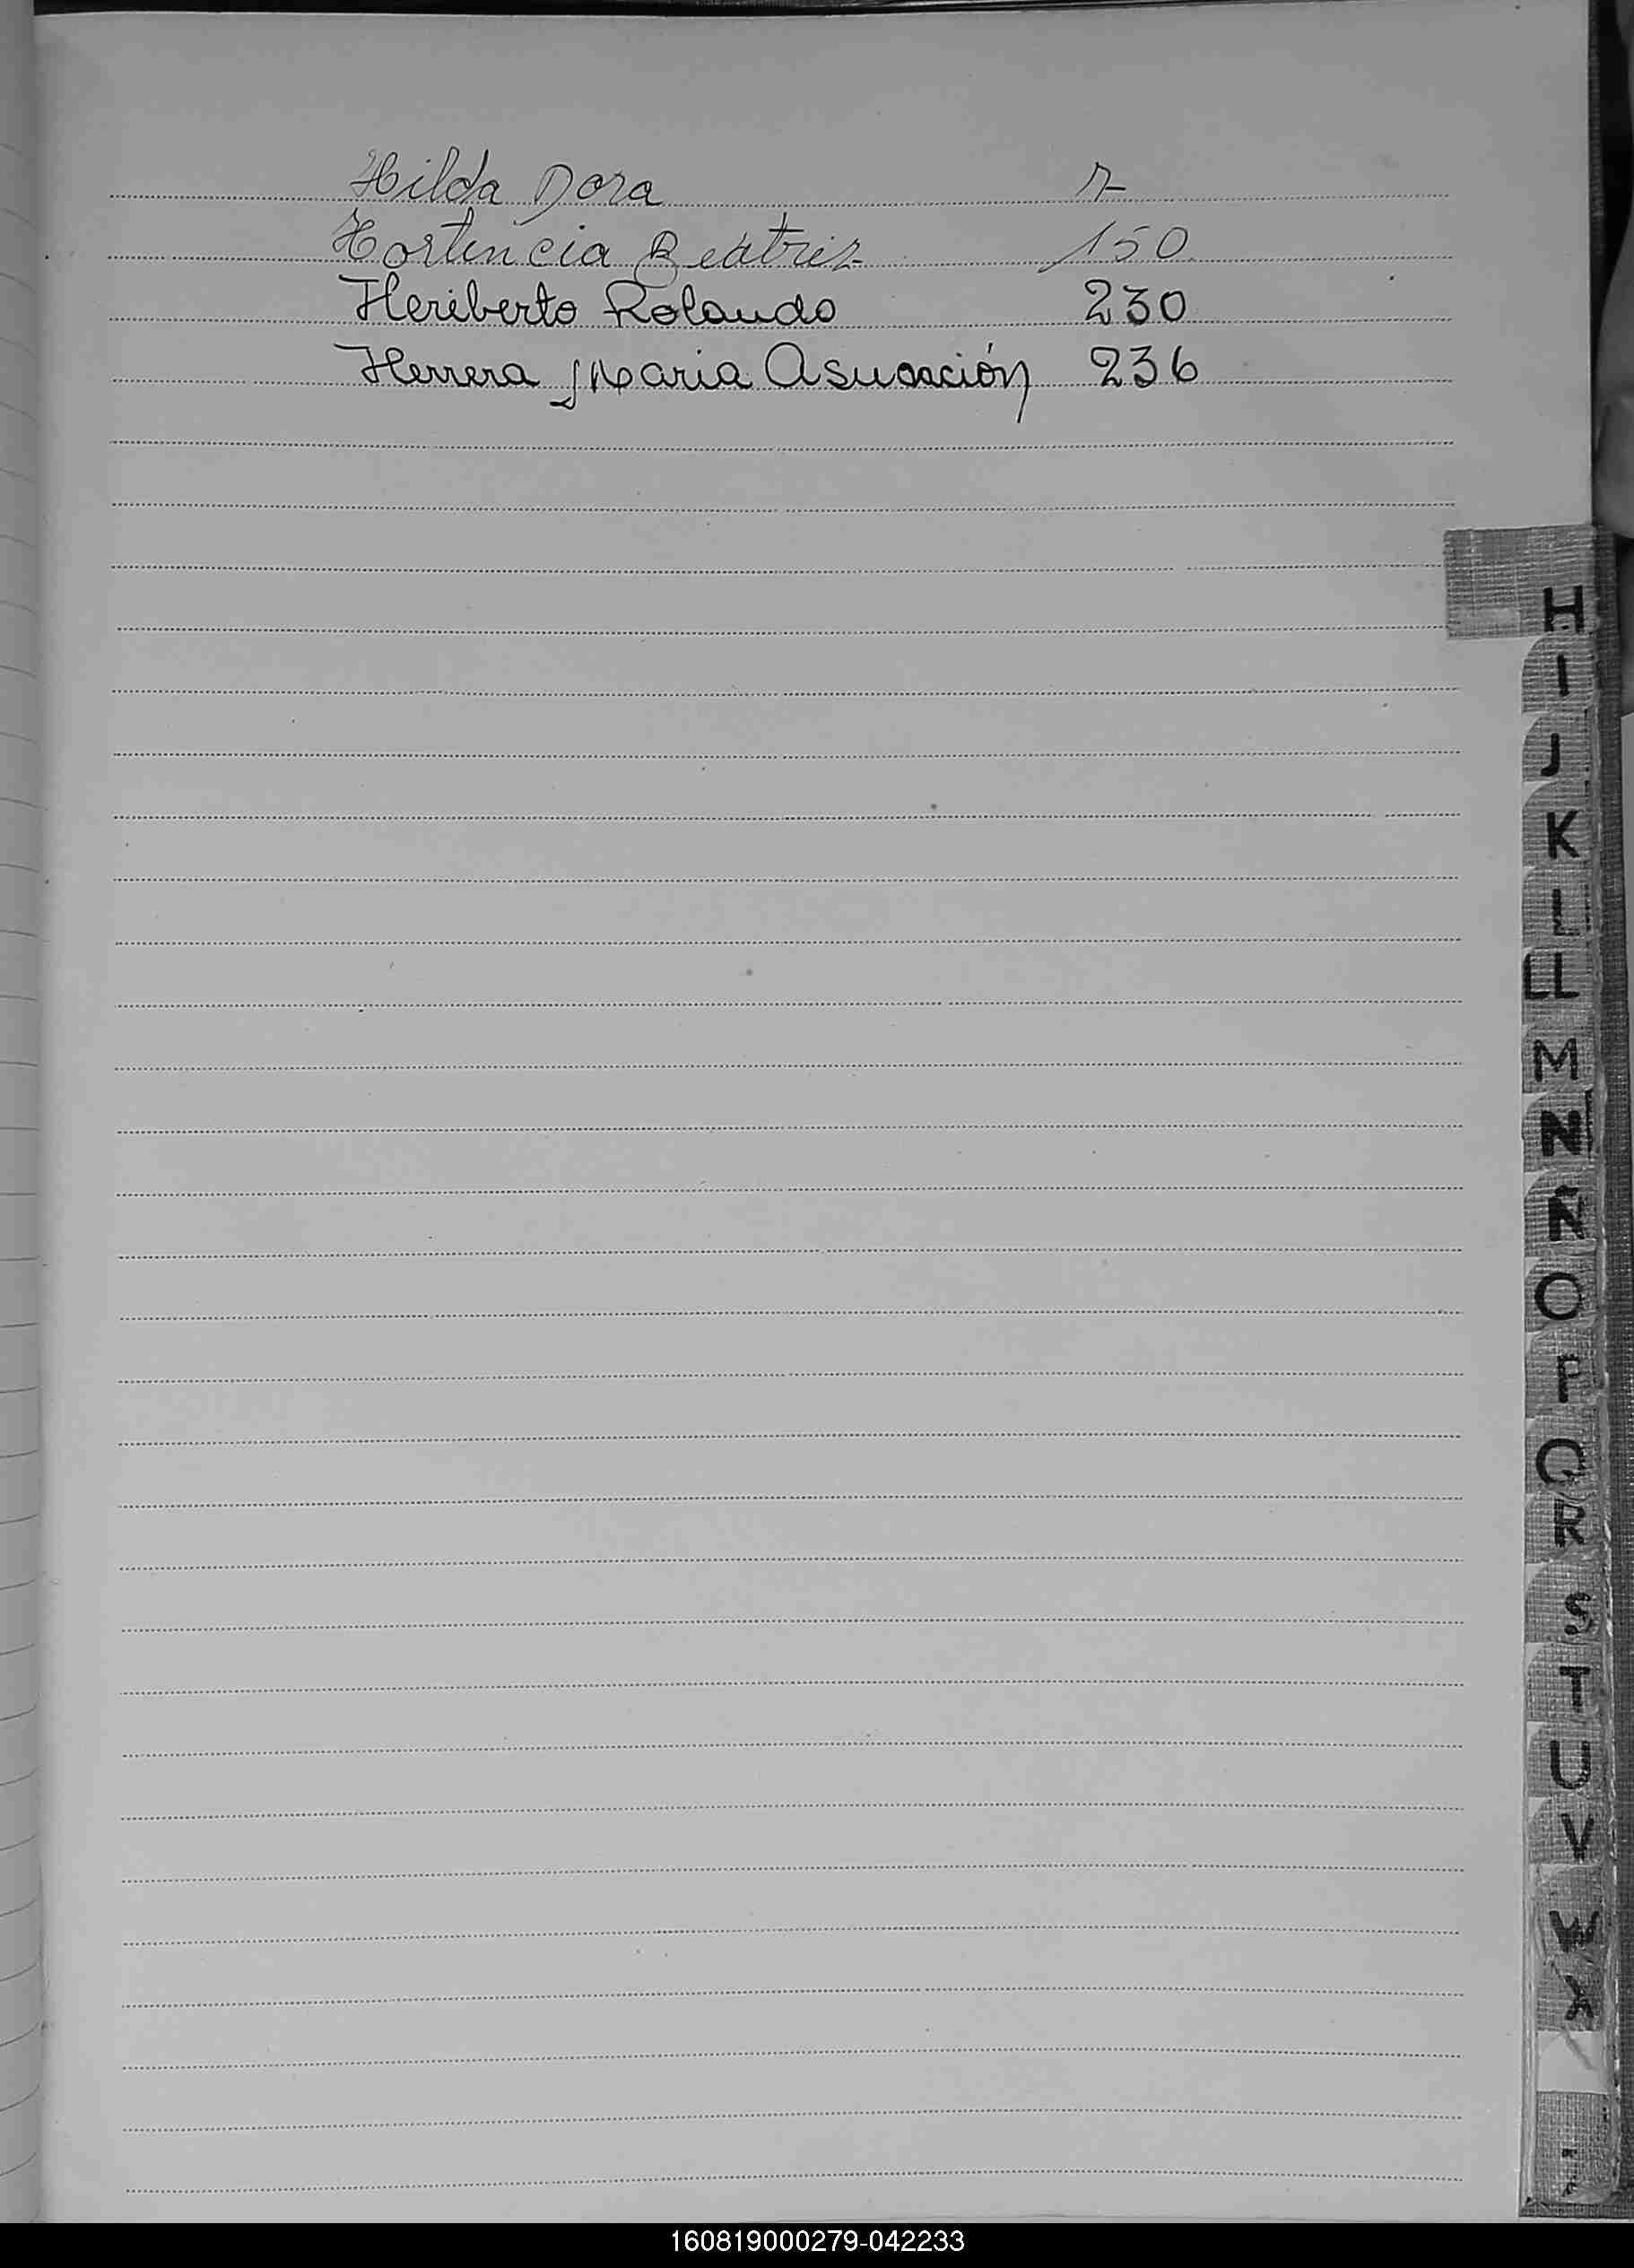 Hilda Dora 7
Hortencia Beatriz 150
Heriberto Rolando 230
Herrera Maria Asunción 236
H
I
J
K
L
LL
M
N
Ñ
O
P
Q
R
S
T
U
V
W
X
160819000279-042233